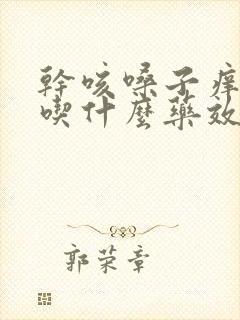 幹咳嗓子痒
喫什麼藥效
郭荣章